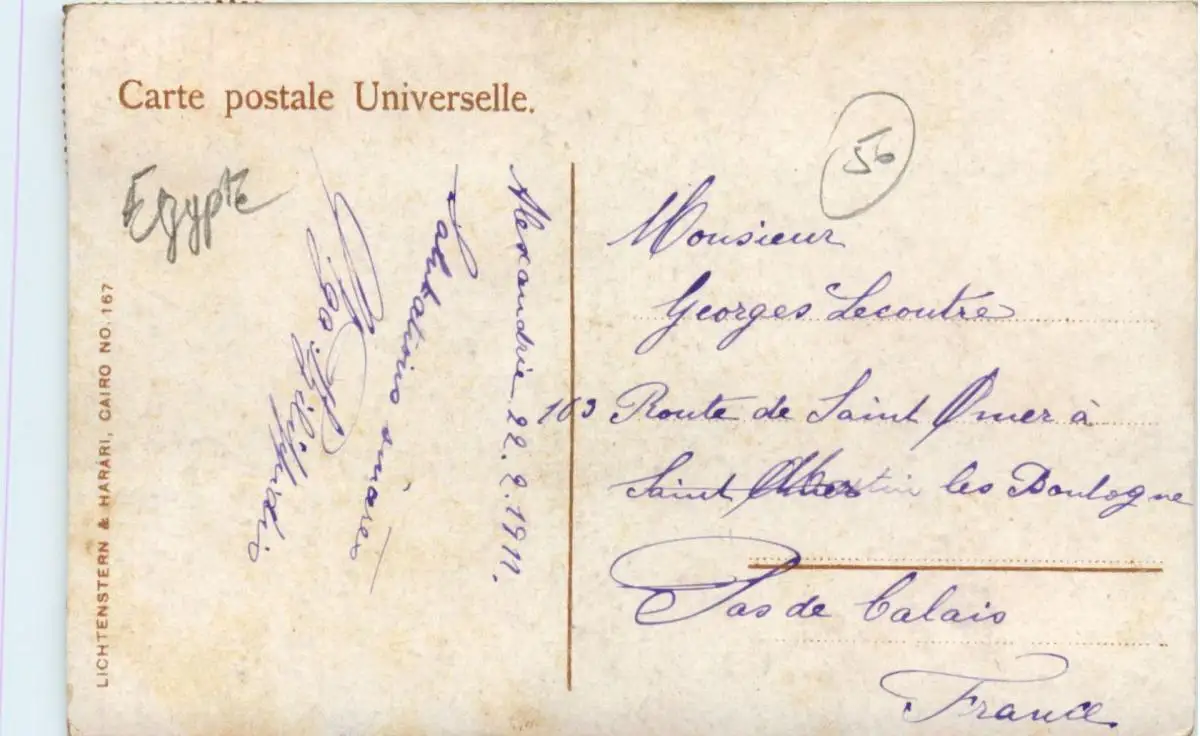 Carte postale Universelle.
Egypte
56
Alexandrie 22.2.1911.
Salutations
Monsieur
Georges Lecoutre
103 Route de Saint Omer à
Saint Martin les Boulogne
Pas de Calais
France
LICHTENSTERN & HARARI, CAIRO NO. 167